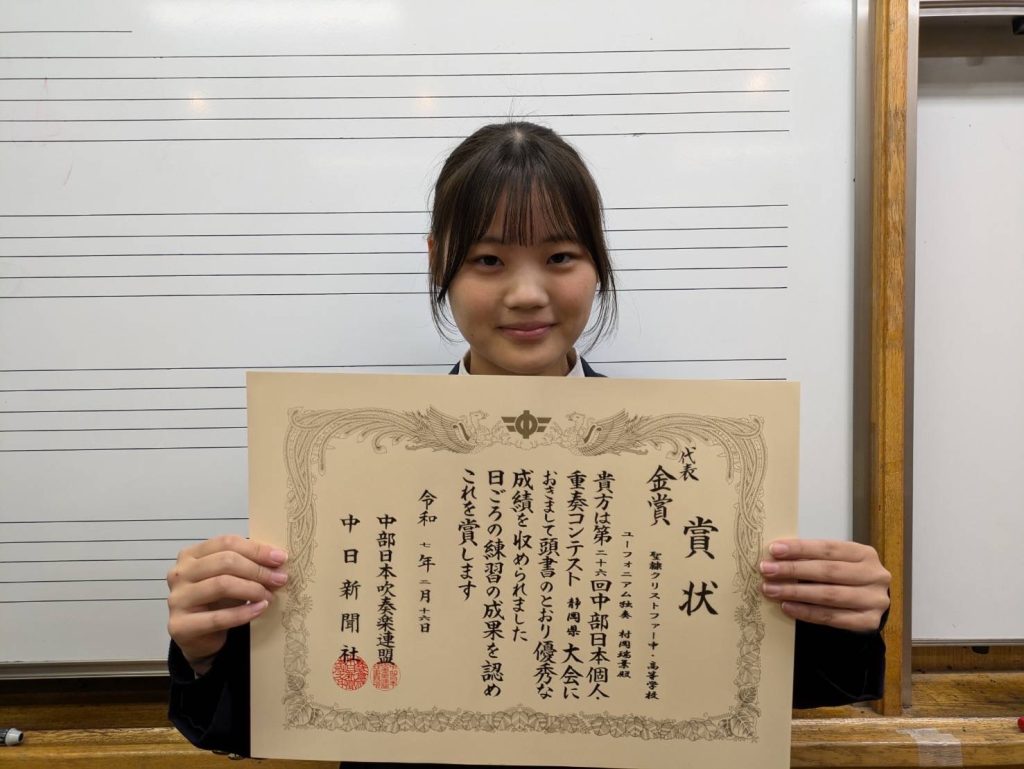 賞状
代表
金賞
聖隷クリストファー中・高等学校
ユーフォニアム独奏 村岡瑞景殿
貴方は第二十六回中部日本個人・
重奏コンテスト 静岡県 大会に
おきまして頭書のとおり優秀な
成績を収められました
日ごろの練習の成果を認め
これを賞します
令和七年二月十六日
中部日本吹奏楽連盟
中日新聞社